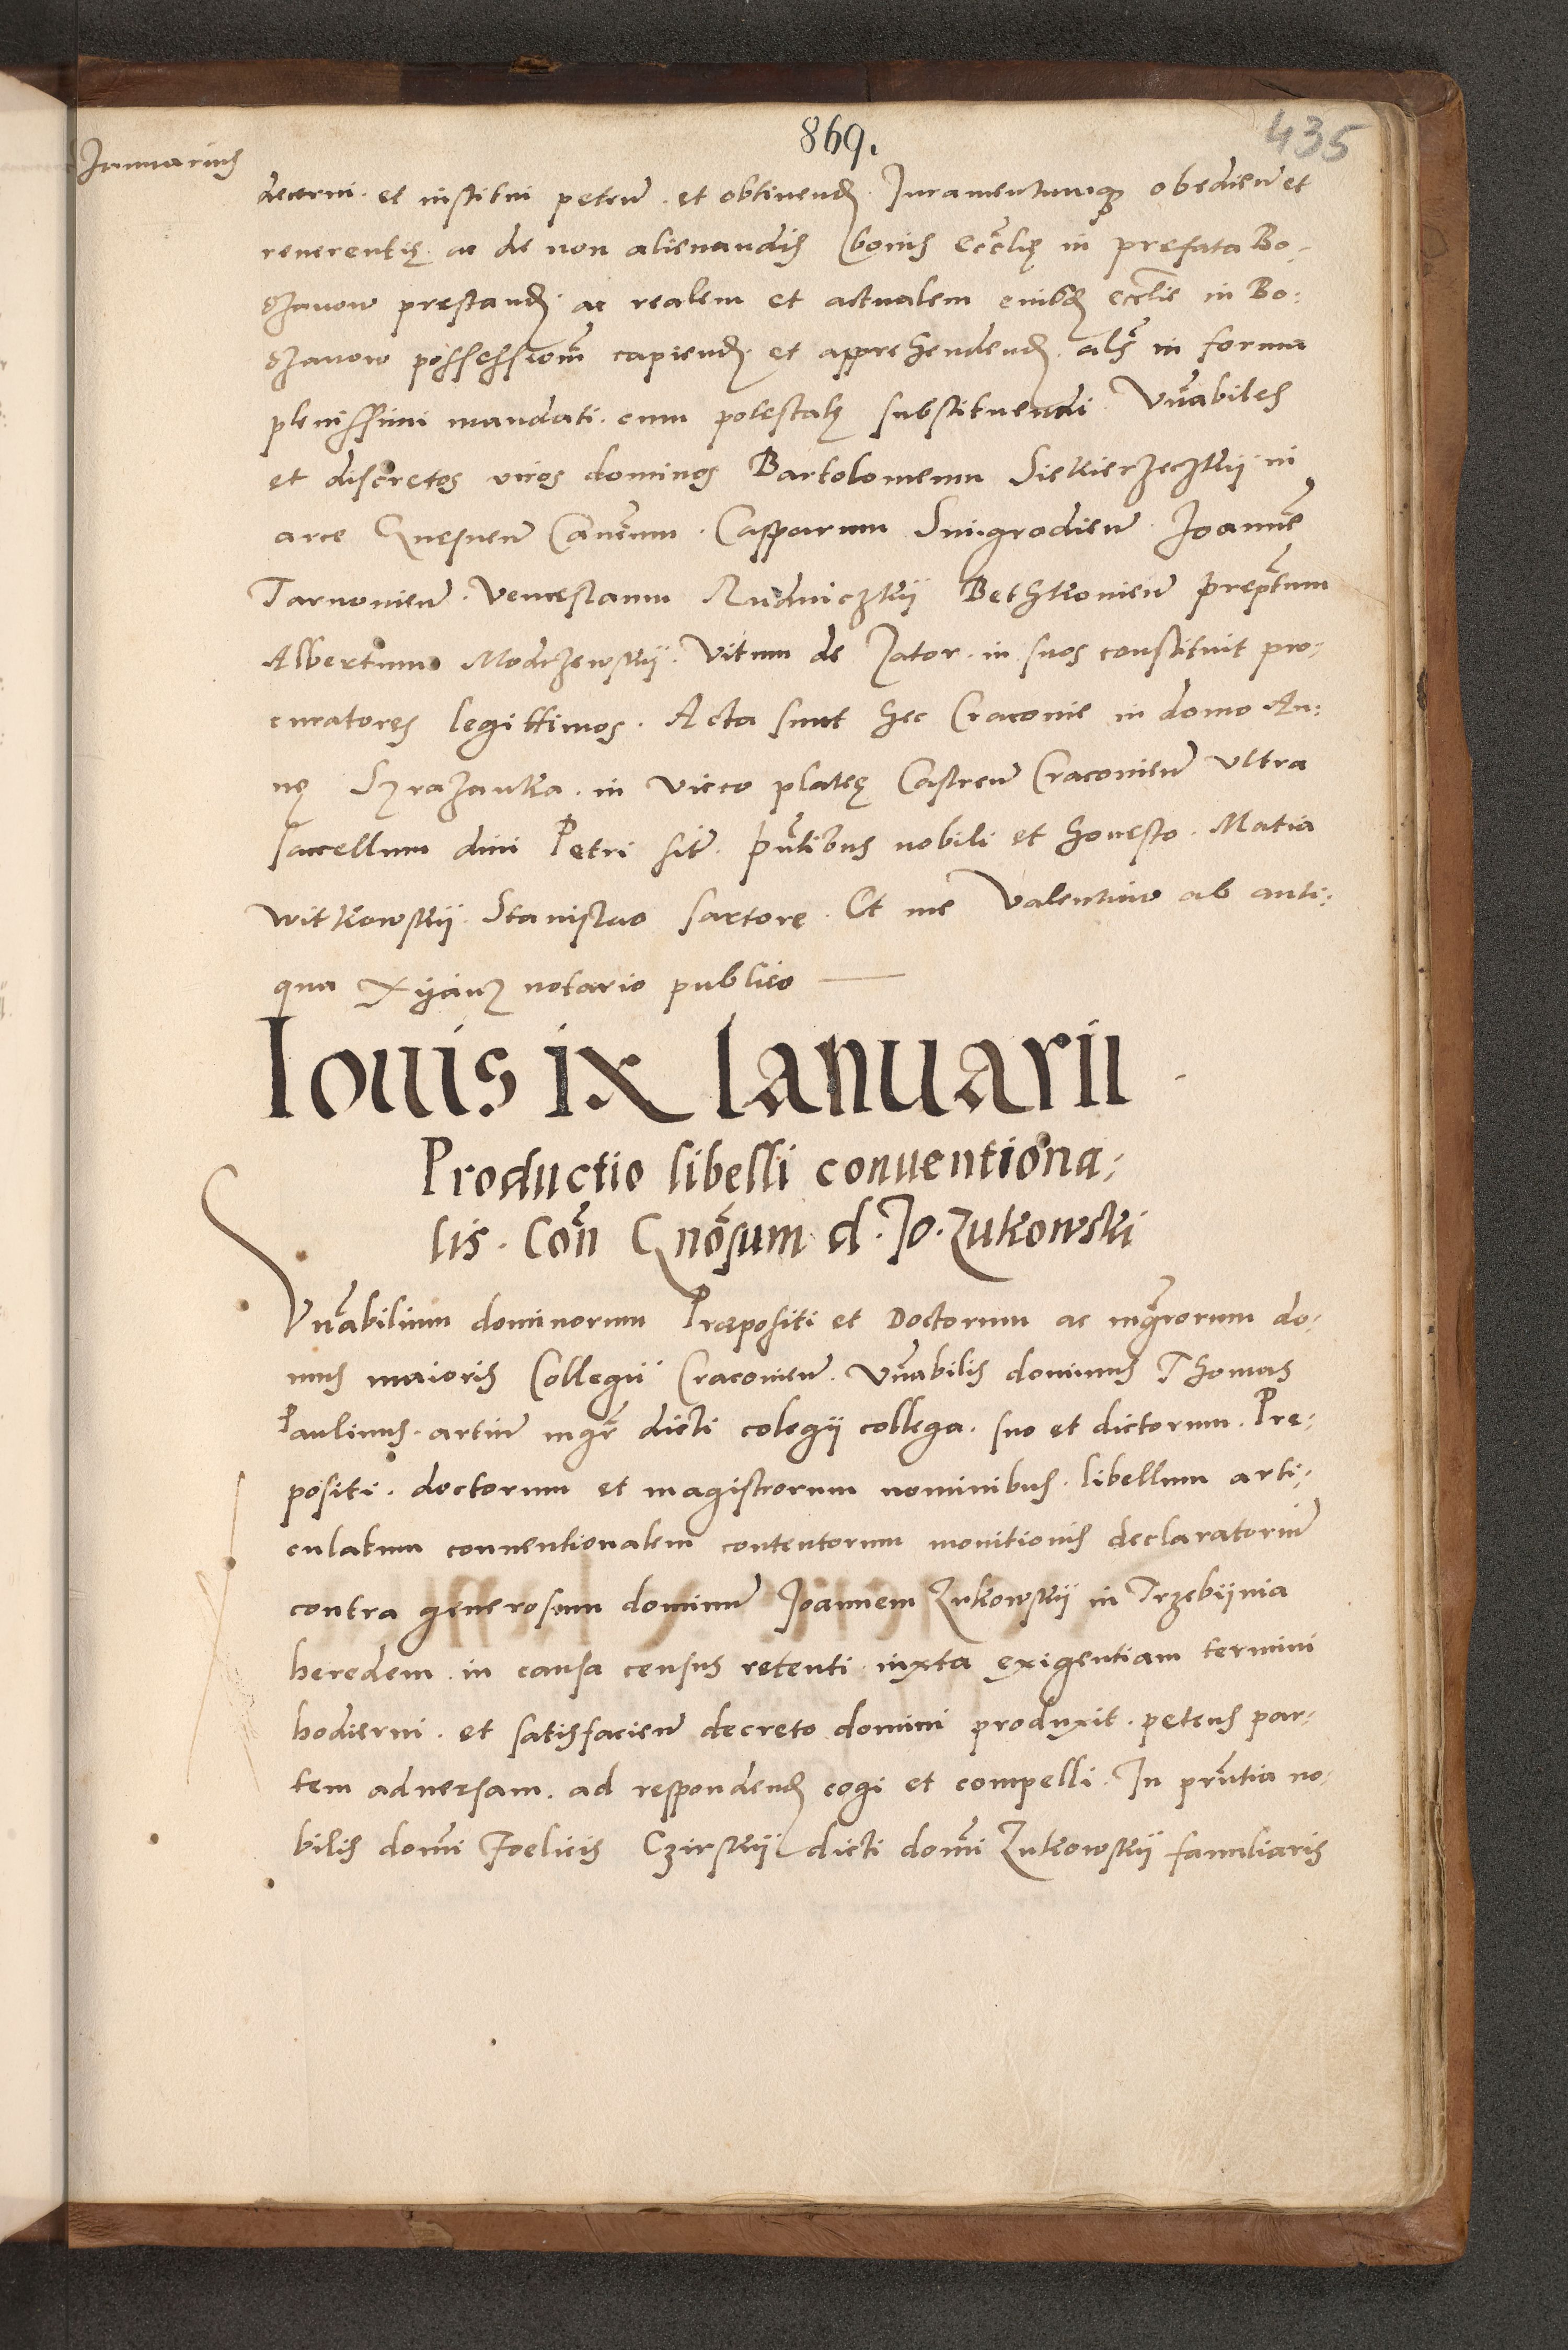 869.
435
Januarius
decerni. et institui peteñ. et obtinend. Juramentumq obedieñ et
reverentię. ac de non alienandis bonis Eccl̃ię in prefata Bo-
zanow prestand. ac realem et actualem eiusd eccl̃ie in Bo:
zanow possessiom̃ capiend. et apprehendend. als̃ in forma
plenissimi mandati. cum potestatę substituendi. Vñabiles
et discretos viros dominos Bartolomeum Siekierzeczkij in
arce Gnesneñ Canõcum. Casparum Smigrodieñ. Joannẽ
Tarnonieñ. Venceslaum Rudniczkij Bethkonieñ prep̃tum
Albertum Modrzewskij. Vitum de Zator. in suos constituit pro:
curatores legittimos. Acta sunt hec Cracovie in domo An:
nę Szrazanka. in vico plateę Castreñ Cracovieñ ultra
sacellum divi Petri sit̃. p̃ntibus nobili et honesto. Matia
Witkowskij. Stanislao sartorę. Et me Valentino ab anti:
qua Xijanz notario publico
Iouis ix Ianuarii
Productio libelli conuentiona:
lis. Cõn Gnõsum d. Jo. Zukowski
Vñabilium dominorum Præpositi et Doctorum ac mgr̃orum do:
mus maioris Collegii Cracovieñ. Vñabilis dominus Thomas
Paulinus. artiũ mgr̃ dicti colegij collega. suo et dictorum. Pre:
positi. doctorum et magistrorum nominibus. libellum arti:
culatum conventionalem contentorum monitionis declaratoriũ
contra generosum dominũ Joannem Zukowskij in Trzebijnia
heredem. in causa census retenti. iuxta exigentiam termini
hodierni. et satisfacieñ decreto domini produxit. petens par:
tem adversam. ad respondend cogi et compelli. In pñtia no:
bilis domĩ Foelicis Czirskij dicti domĩ Zukowskij familiaris